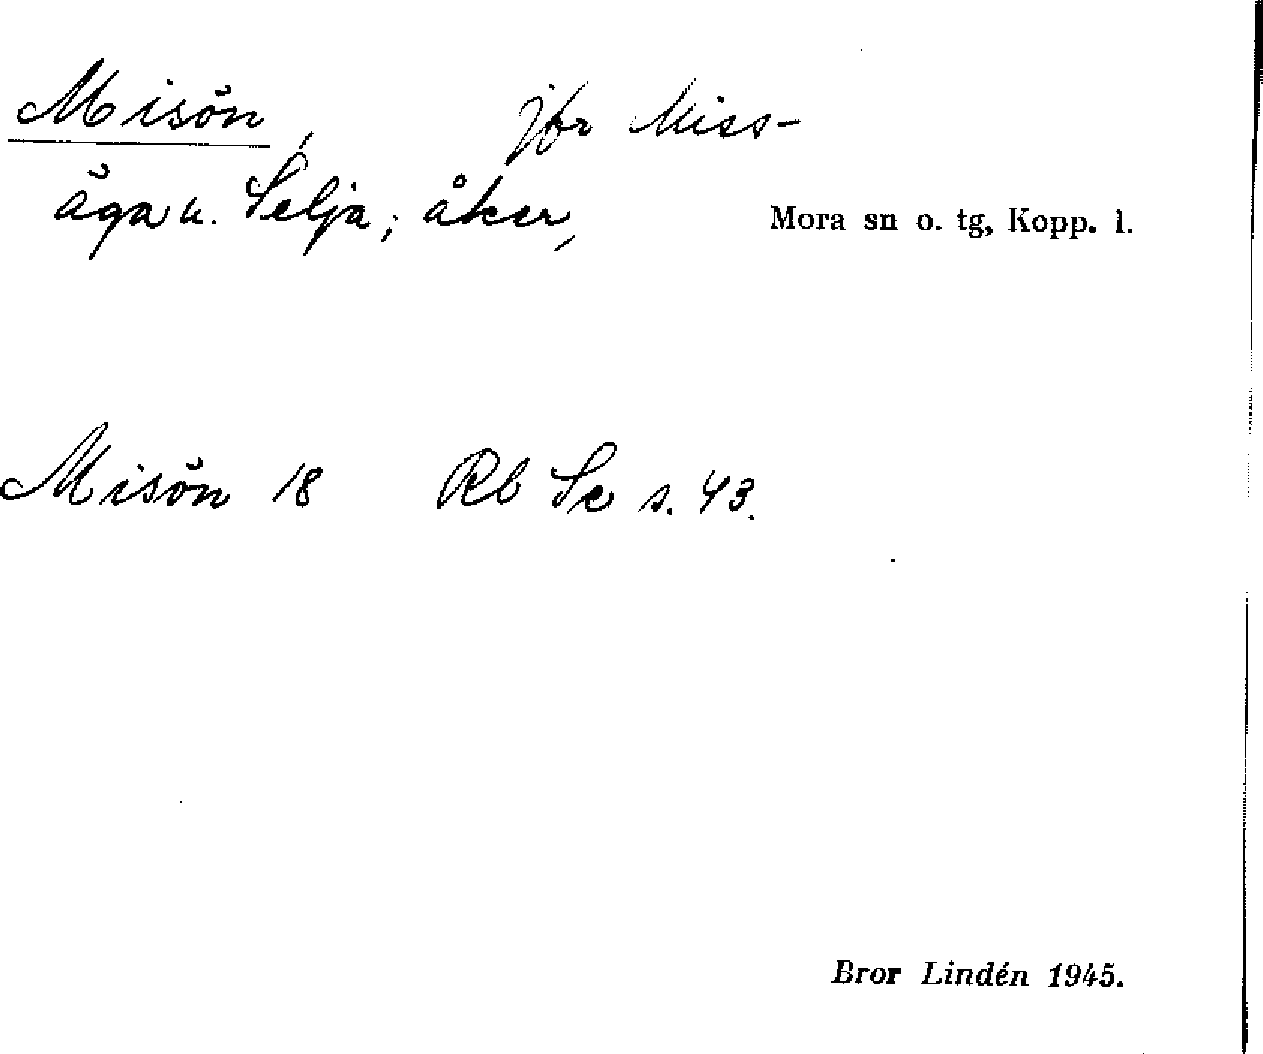 Misön, jfr Miss-
äga u. Selja; åker, Mora sn o. tg, Kopp. l.
Misön 18 Rb Se s. 43.
Bror Lindén 1945.